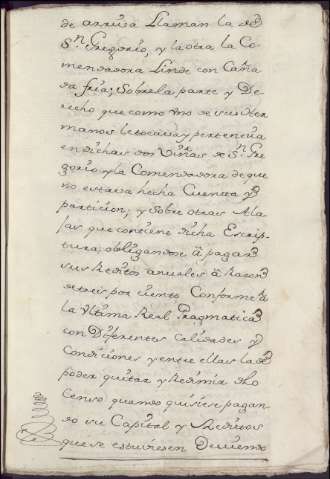 de arriva llaman la de
Sn. Gregorio, y la otra la Co-
mendadora Linde con Caña
da fria; Sobre la parte y De-
recho que como uno de seis Her
manos le tocava y pertenecia
en dichas dos Viñas de Sn. Gre
gorio y la Comendadora de que
no estava hecha Cuenta y
particion; y Sobre otras Ala
Jas que contiene dicha Escrip-
tura, obligandose á pagar
sus Reditos anuales á Razon
de tres por ciento Conforme á
la Ultima Real Pragmatica
con Diferentes calidades y
Condiciones y entre ellas la de
poder quitar y Redimir dho
Censo quando quisiese pagan-
do su Capital y Reditos
que se estuviesen Deviendo